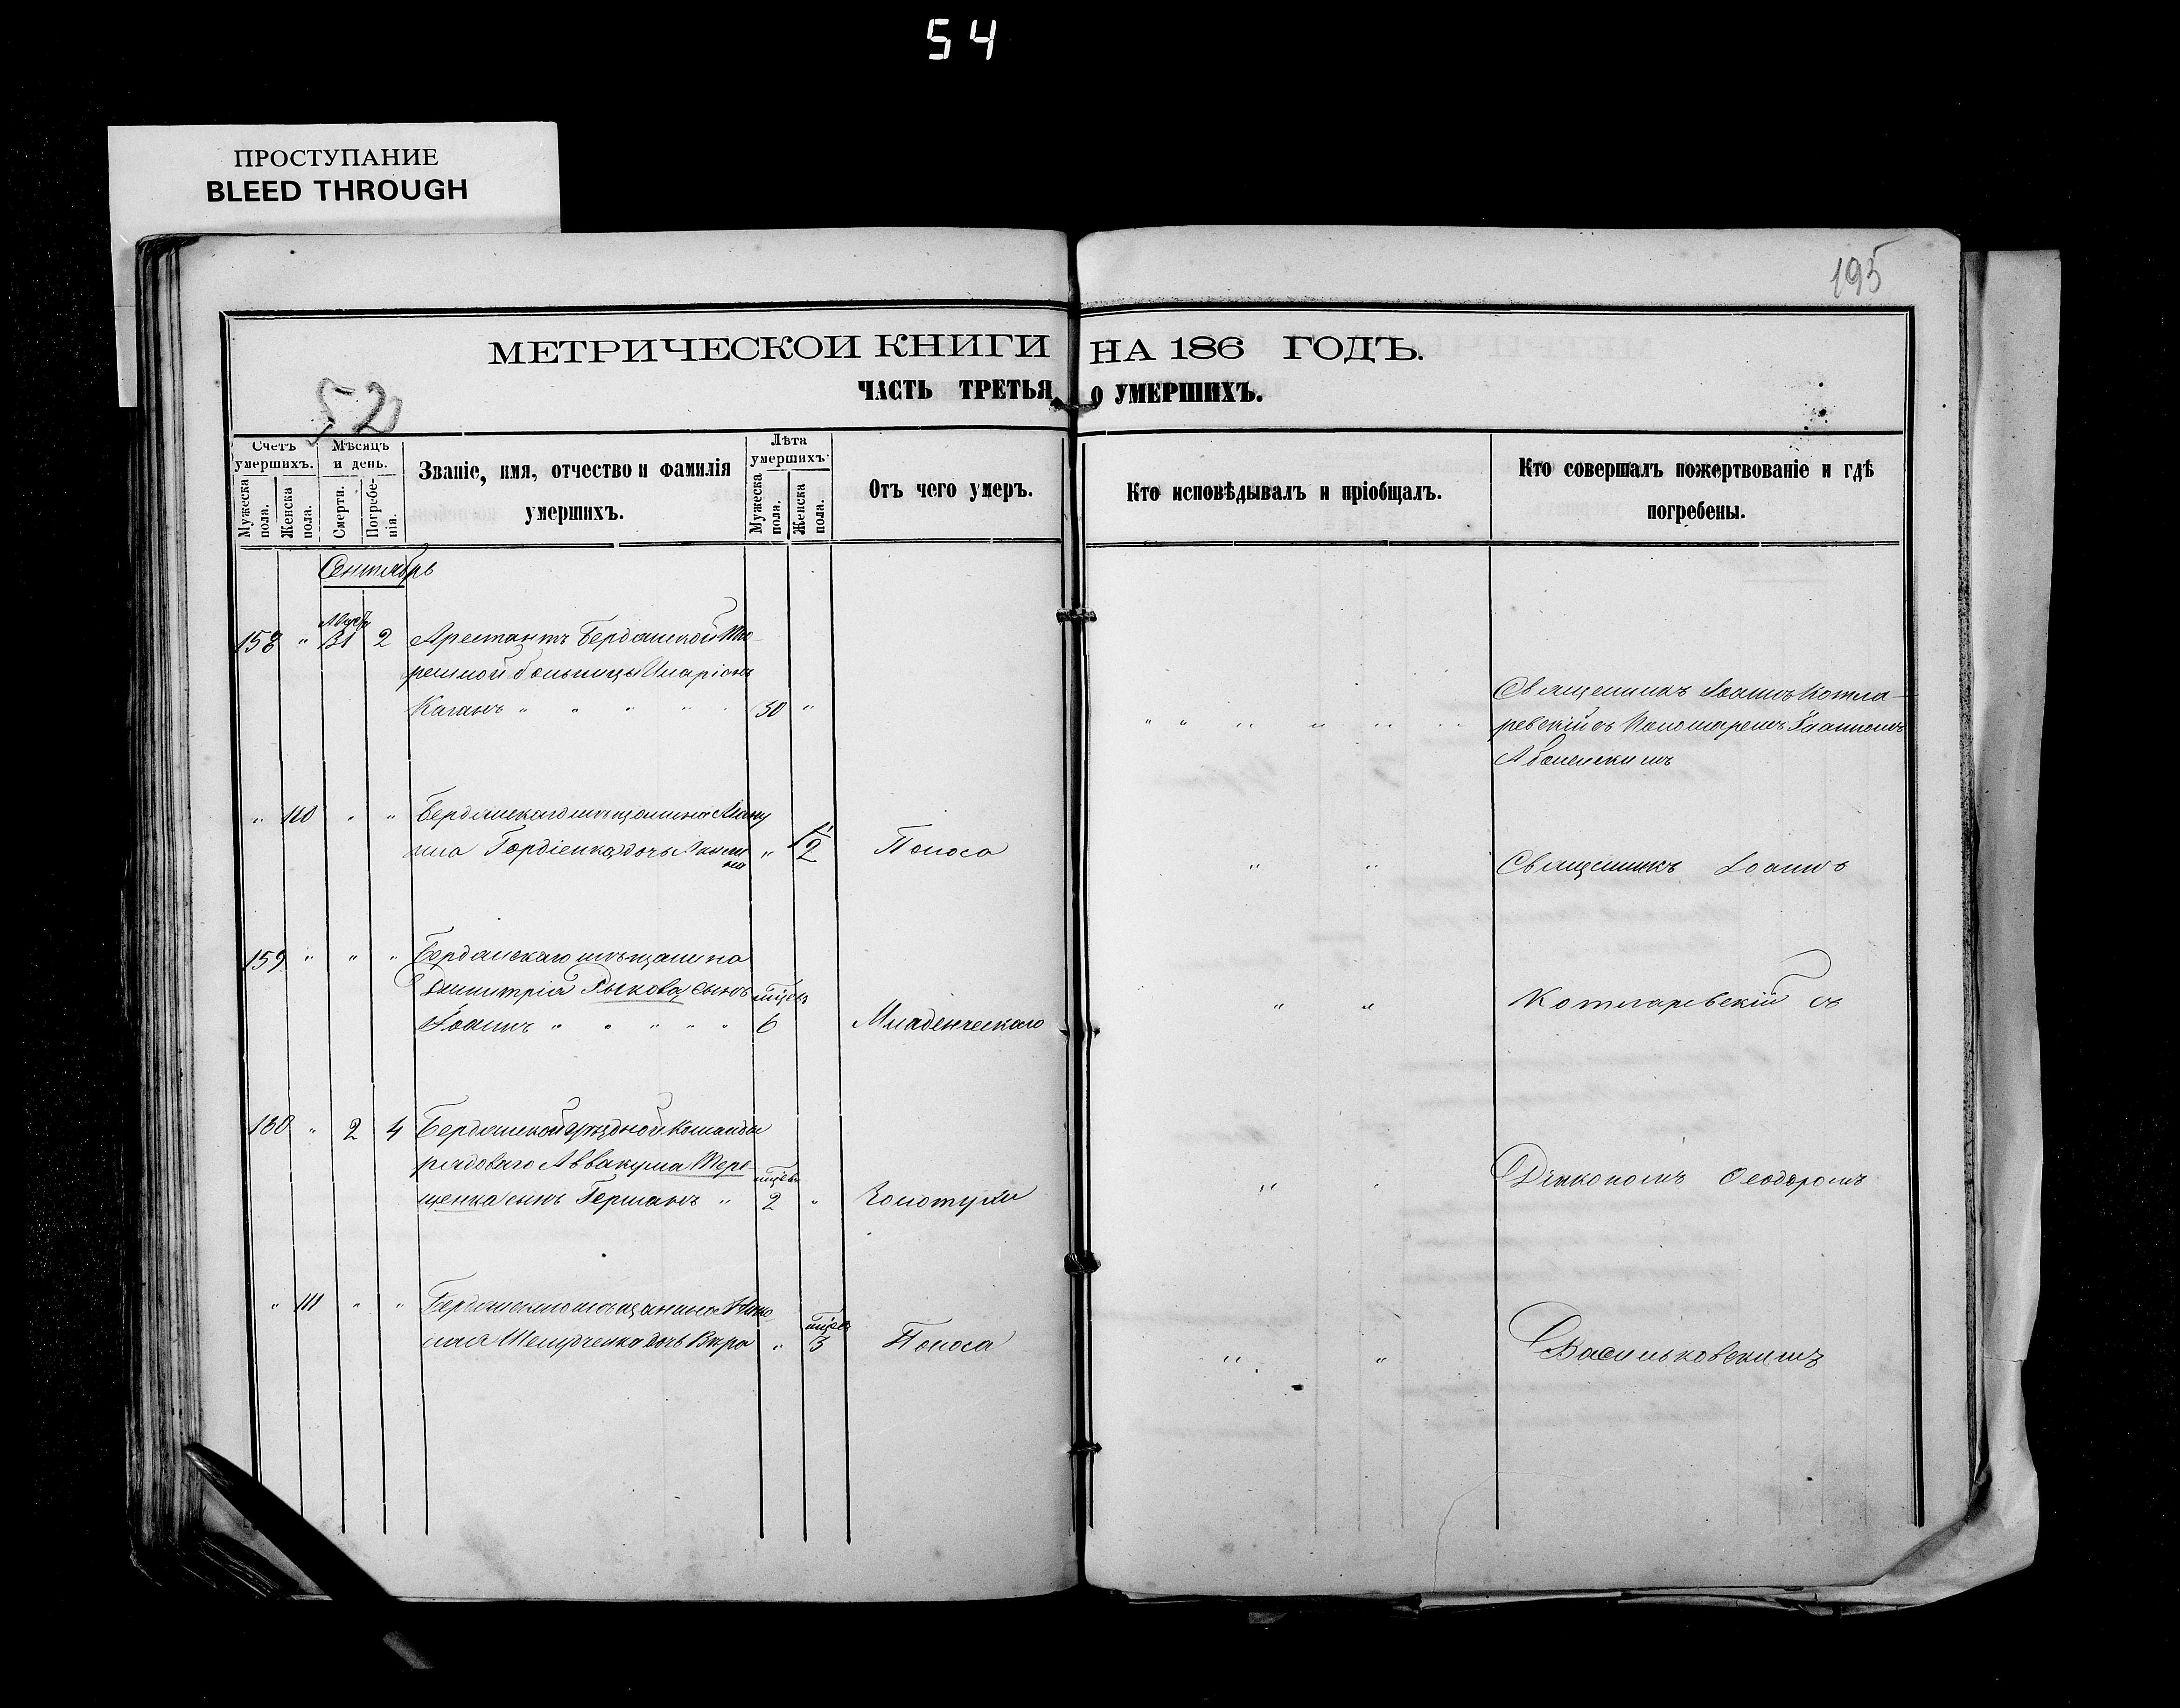 54
ПРОСТУПАНИЕ
BLEED THROUGH
195
МЕТРИЧЕСКОЙ КНИГИ НА 186 ГОДЪ.
52
ЧАСТЬ ТРЕТЬЯ О УМЕРШИХЪ.
Счетъ умершихъ.
Мужеска пола.
Женска пола.
Мѣсяцъ и день.
Смерти.
Погребенія.
Званіе, имя, отчество и фамилія
умершихъ.
Лѣта умершихъ.
Мужеска пола.
Женска пола.
Отъ чего умеръ.
Кто исповѣдывалъ и пріобщалъ.
Кто совершалъ пожертвованіе и гдѣ
погребены.
Сентябрь
158 " 31 2 Арестантъ Бердянской Тю-
ремной больницы Иларіонъ
Каганъ " " " " 30 "
Священникъ Іоаннъ Котля-
ревскій съ Пономаремъ Іоанномъ
" 110 " " Бердянскаго мѣщанина
Гордіенка дочь " 1/2 Поноса " "
Священникъ Іоаннъ
159 " " " Бердянскаго мѣщанина
Димитрія Рыкова сынъ мцевъ
Іоаннъ " " " " " 6 Младенческаго " "
Котляревскій съ
160 " 2 4 Бердянской уѣздной команды
рядоваго Аввакума Тере-
щенка сынъ Германъ " мцевъ 2 " Золотухи " "
Діякономъ Ѳеодоромъ
" 111 " " Бердянскаго мѣщанина
дочь Вѣра " мцевъ 3 Поноса " "
Васильковскимъ